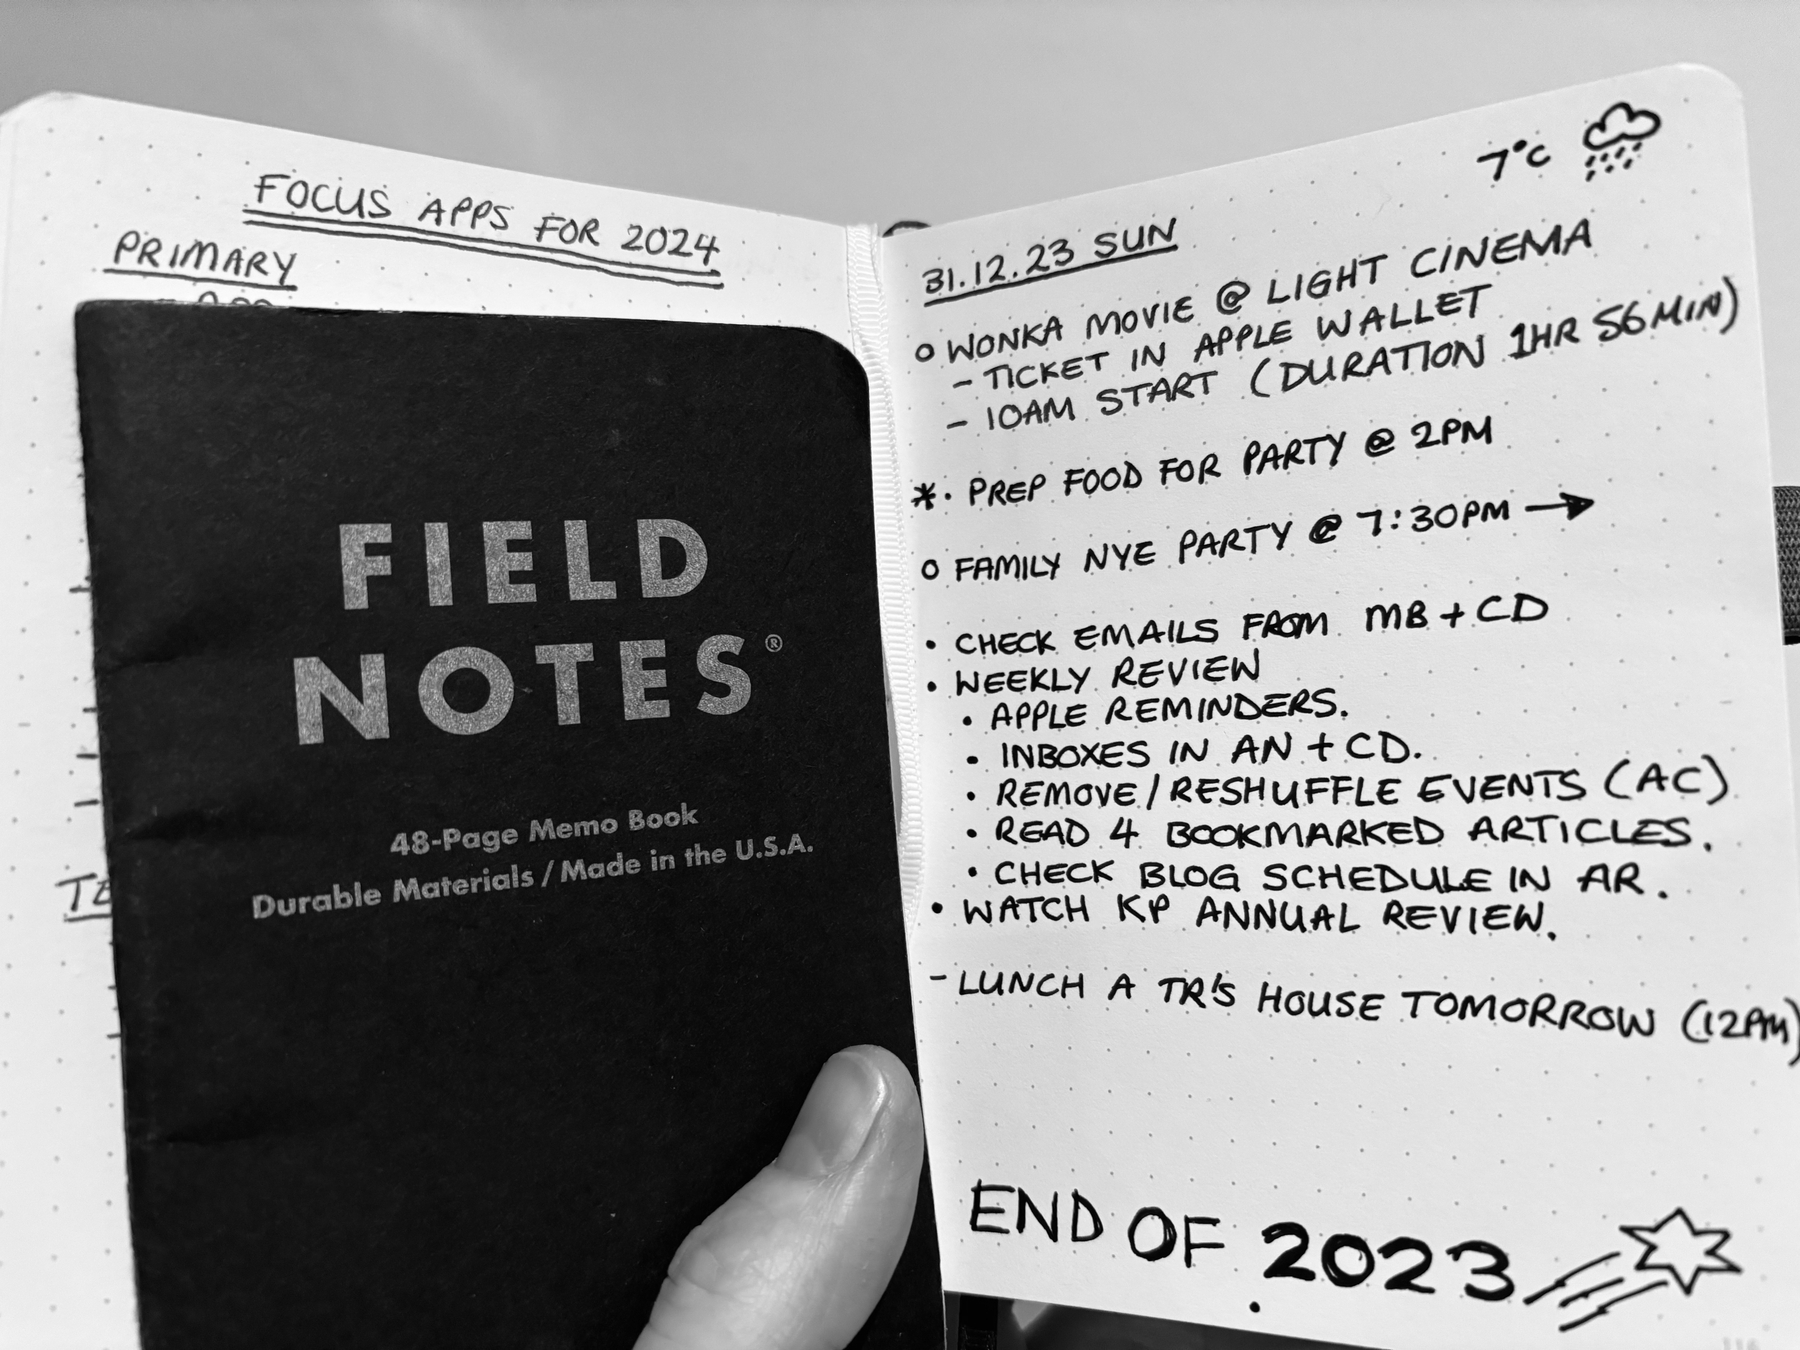 FOCUS APPS FOR 2024
PRIMARY
FIELD
NOTES®
48-Page Memo Book
Durable Materials / Made in the U.S.A.
7°C
31.12.23 SUN
o WONKA MOVIE @ LIGHT CINEMA
- TICKET IN APPLE WALLET
- 10AM START (DURATION 1HR 56MIN)
*· PREP FOOD FOR PARTY @ 2PM
o FAMILY NYE PARTY @ 7:30PM →
• CHECK EMAILS FROM MB + CD
• WEEKLY REVIEW
• APPLE REMINDERS.
• INBOXES IN AN + CD.
• REMOVE / RESHUFFLE EVENTS (AC)
• READ 4 BOOKMARKED ARTICLES.
• CHECK BLOG SCHEDULE IN AR.
• WATCH KP ANNUAL REVIEW.
- LUNCH A TR'S HOUSE TOMORROW (12PM)
END OF 2023